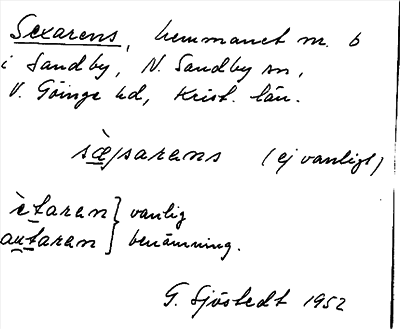 Sexarens, hemmanet nr. 6
i Sandby, N. Sandby sn,
V. Göinge hd, Krist. län.
sæ̀ʃsarens (ej vanligt)
ètaren } vanlig
au̯taren } benämning.
G. Sjöstedt 1952